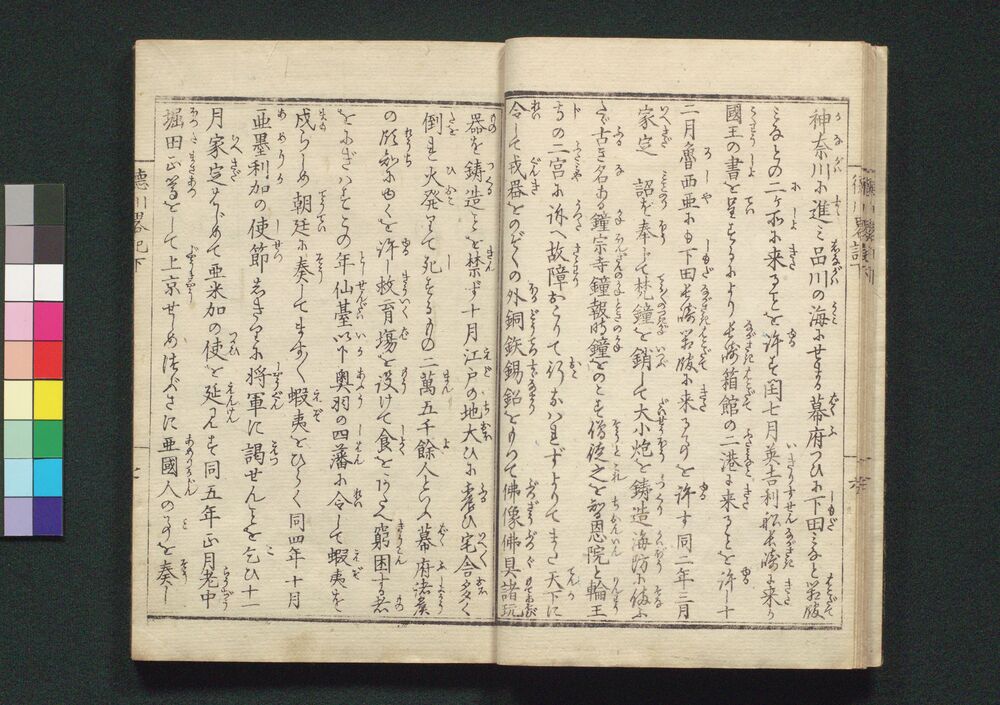 神奈川に進ミ品川の海にせまる幕府つひに下田みなと箱館
みなとの二ヶ所に来ることを許す閏七月英吉利船長崎に来り
國王の書を呈するにより長崎箱館の二港に来ることを許し十
二月魯西亜にも下田長崎箱館に来るを許す同二年三月
家定 詔を奉じて梵鐘を銷して大小炮を鋳造海防に備ふ
たゞ古き名ある鐘宗寺鐘報時鐘をのこす僧徒之を智恩院と輪王
寺の二宮に訴へ故障おこりて行なはれずよりてまた天下に
令して戎器をのぞくの外銅鉄錫鉛をもつて佛像佛具諸玩
器を鋳造ことを禁ず十月江戸の地大ひに震ひ宅舎多く
倒れ火發りて死するもの二萬五千餘人といふ幕府諸侯
の
を許し救育場を設けて食をあたへ窮困する者
をにぎはすこの年仙臺以下奥羽の四藩に令して蝦夷を
戍らしめ朝廷に奏してますます蝦夷をひらく同四年十月
亜墨利加の使節しきりに将軍に謁せんことを乞ひ十一
月家定はじめて亜米加の使を延見す同五年正月老中
堀田正篤をして上京せしめ つぶさに亜國人のことを奏し
徳川畧記下